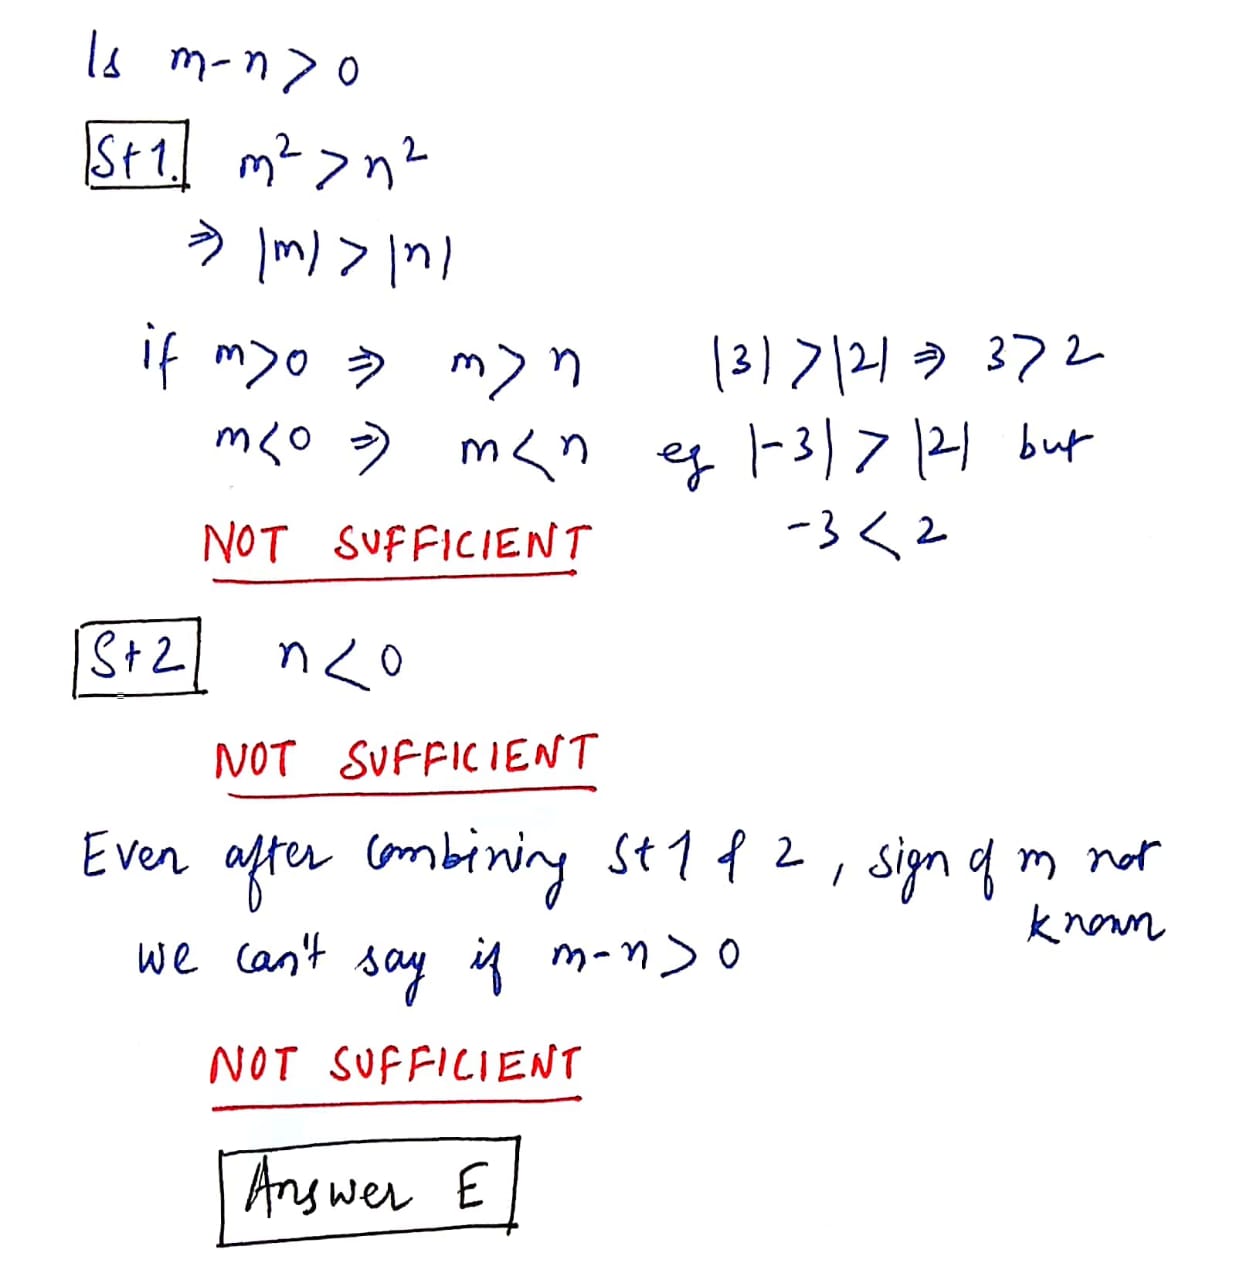 Is m-n>0
St 1. m²>n²
⇒ |m|>|n|
if m>0 ⇒ m>n |3|>|2| ⇒ 3>2
m<0 ⇒ m<n eg |-3|>|2| but
-3<2
NOT SUFFICIENT
St 2 n<0
NOT SUFFICIENT
Even after combining St 1 & 2, sign of m not
known
we can't say if m-n>0
NOT SUFFICIENT
Answer E